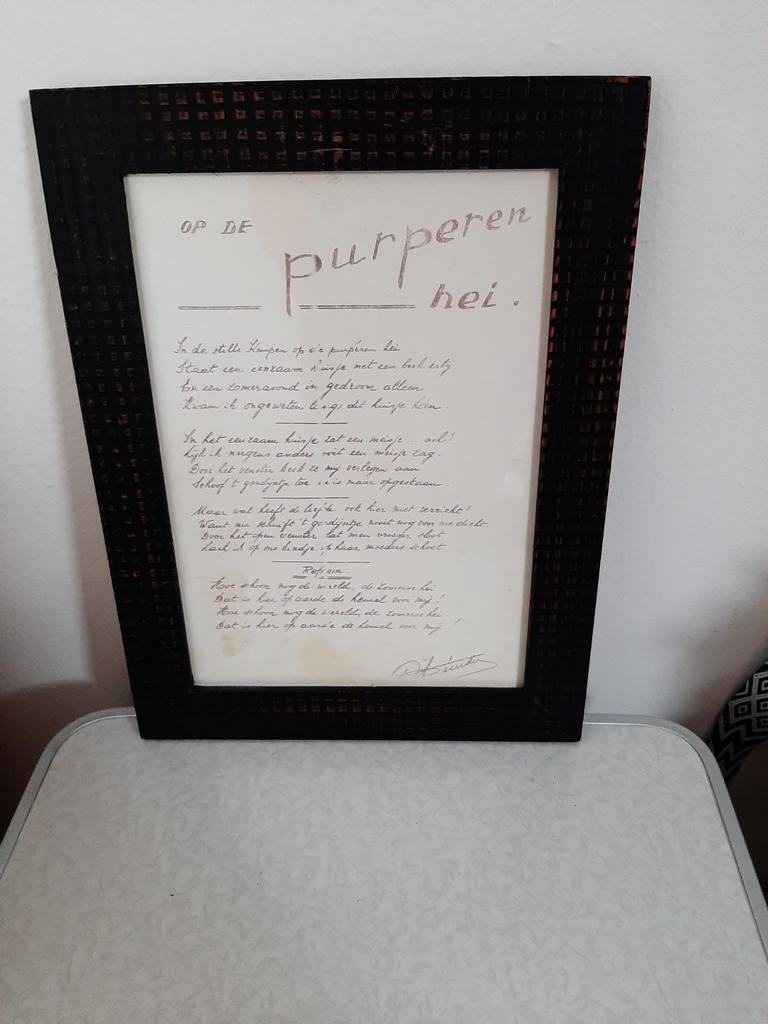 OP DE
purperen
hei.
In de stille Kempen op de purperen hei
Staat een eenzaam huisje met een berk erbij
En een zomeravond in gedroom alleen
Kwam ik ongeweten langs dit huisje heen.
In het eenzaam huisje zat een meisje... ach!
Lijk ik nergens anders ooit een meisje zag.
Door het venster keek ze mij verlegen aan
Schoof 't gordijntje toe is maar opgestaan.
Maar wat heeft de liefde ook hier niet verricht!
Want nu schuift 't gordijntje nooit nog voor me dicht
Door het open venster dat men vroeger sloot
Lach ik op me kindje op haar moeders schoot
Refrein:
Hoe schoon nog de wereld, de zomerse hei
Dat is hier op aarde de hemel voor mij!
Hoe schoon nog de wereld, de zomerse hei
Dat is hier op aarde de hemel voor mij!